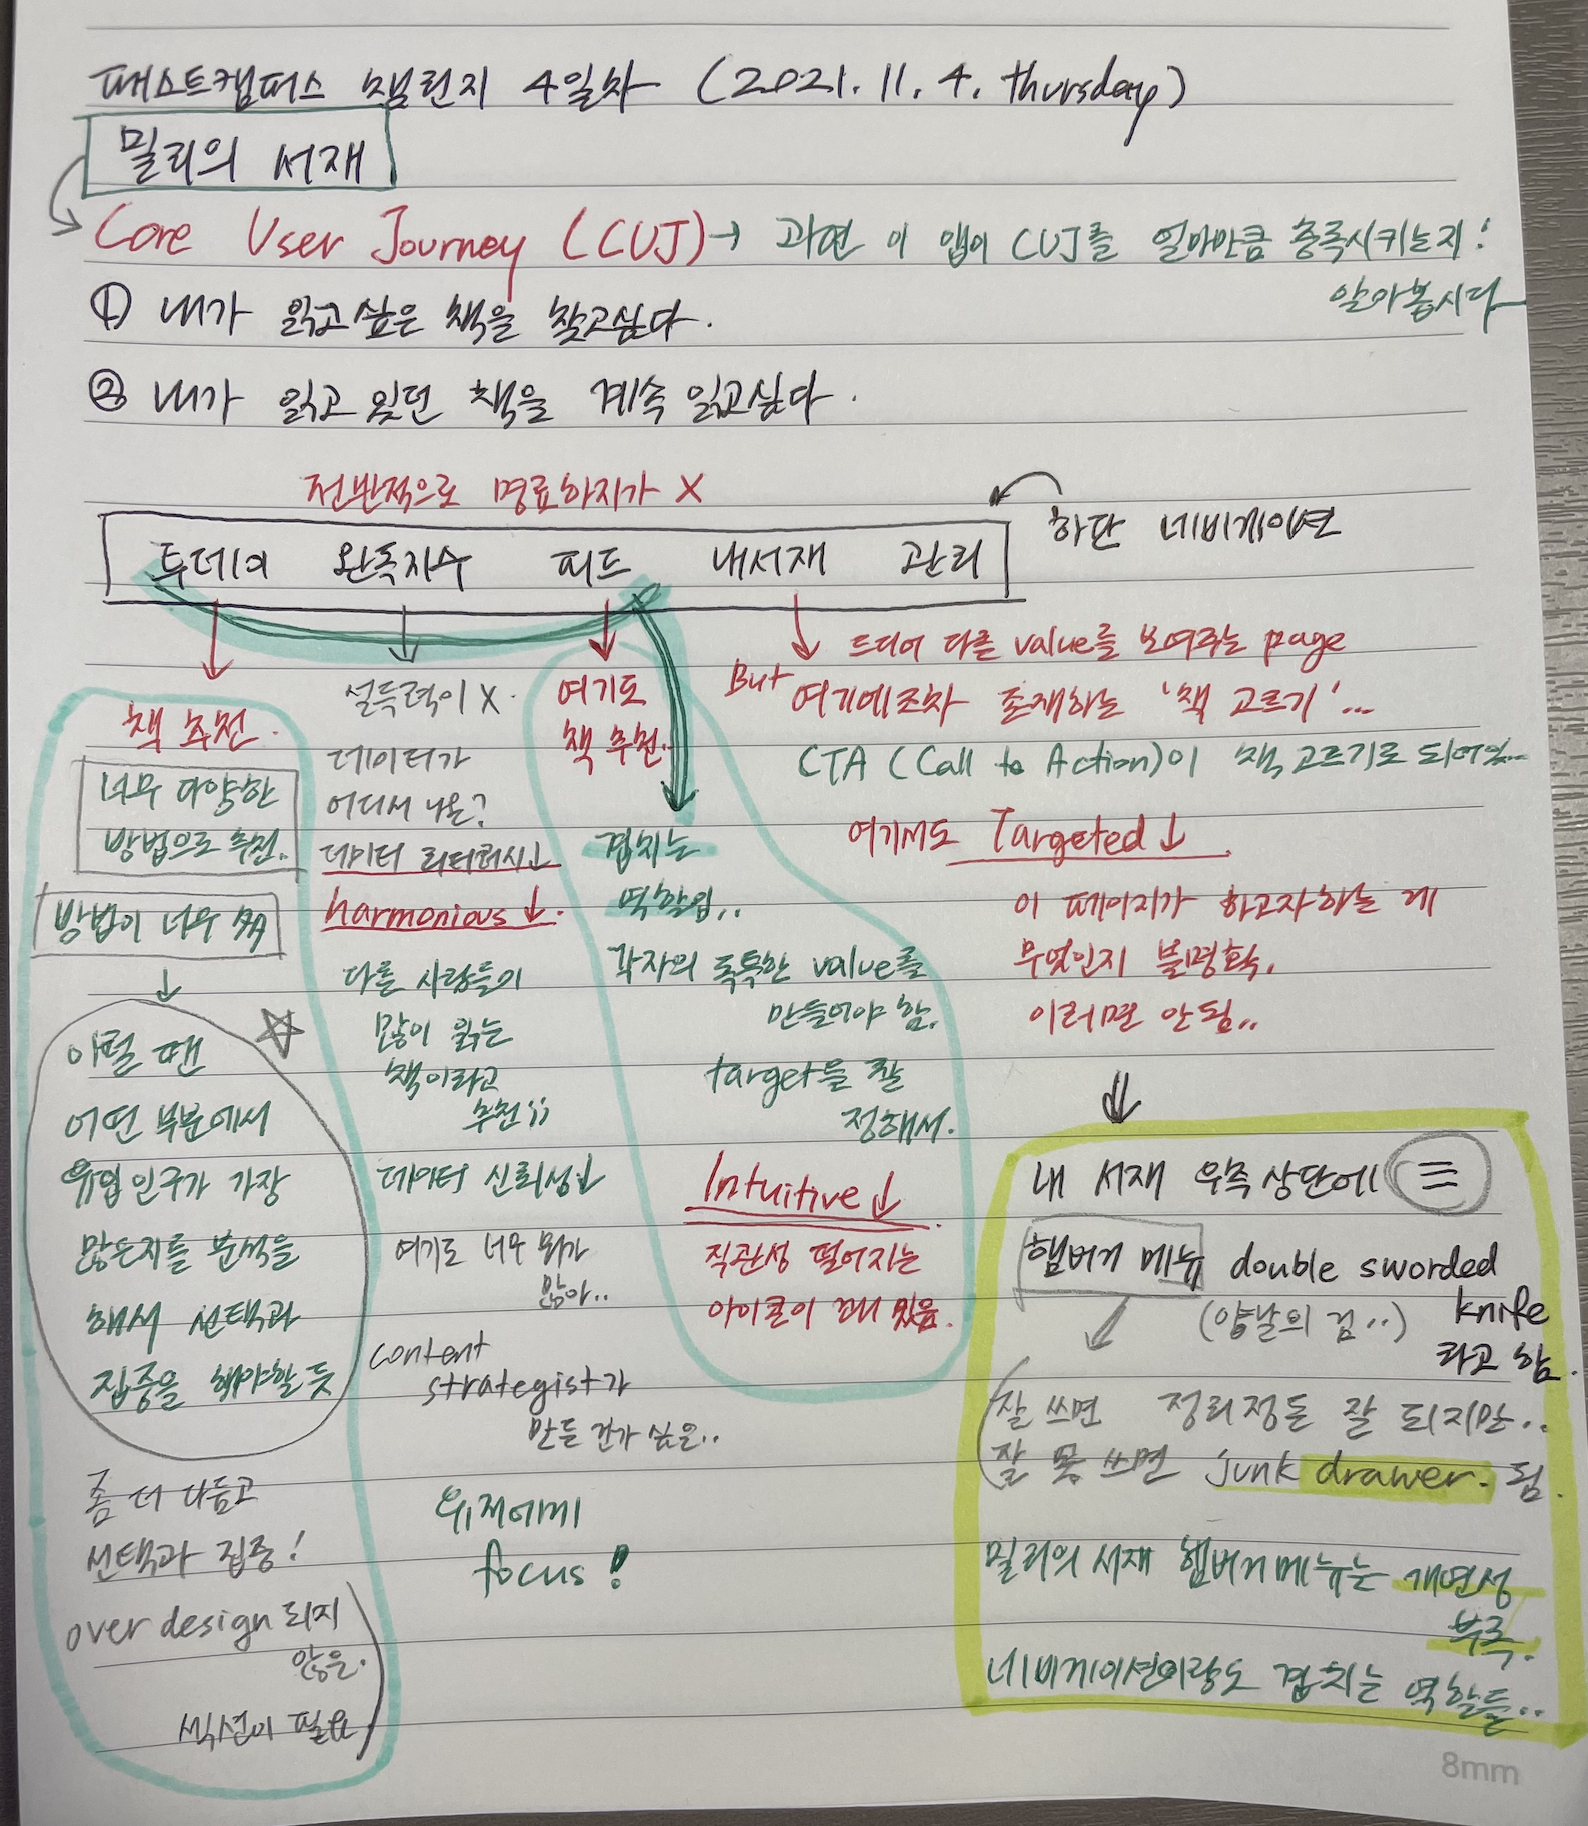 패스트캠퍼스 챌린지 4일차 (2021. 11. 4. thursday)
밀리의 서재
Core User Journey (CUJ) → 과연 이 앱이 CUJ를 얼마만큼 충족시키는지!
알아봅시다
① 내가 읽고싶은 책을 찾고싶다.
② 내가 읽고 있던 책을 계속 읽고싶다.
전반적으로 명료하지가 X
하단 네비게이션
투데이 완독지수 피드 내서재 관리
책 추천.
너무 다양한
방법으로 추천..
방법이 너무 多
이럴 땐
어떤 부분에서
유입인구가 가장
많은지를 분석을
해서 선택과
집중을 해야할 듯
좀 더 다듬고
선택과 집중!
over design 되지
않은.
섹션이 필요
설득력이 X.
데이터가
어디서 나온?
데이터 리터러시↓
harmonious ↓.
다른 사람들이
많이 읽는
책이라고
추천;;
데이터 신뢰성↓
여기도 너무 뭐가
많아..
content
strategist가
만든 건가 싶은..
유저에게
focus!
여기도
책 추천.
겹치는
역할임..
각자의 독특한 value를
만들어야 함.
target을 잘
정해서.
Intuitive ↓
직관성 떨어지는
아이콘이 꽤 있음.
드디어 다른 value를 보여주는 page
But 여기에조차 존재하는 '책 고르기'...
CTA (Call to Action)이 책 고르기로 되어있...
여기서도 Targeted ↓
이 페이지가 하고자하는 게
무엇인지 불명확.
이러면 안됨..
⇓
내 서재 우측 상단에 ☰
햄버거 메뉴 double sworded
(양날의 검..) knife
라고 함.
잘 쓰면 정리정돈 잘 되지만..
잘 못 쓰면 junk drawer. 됨.
밀리의 서재 햄버거 메뉴는 개연성
부족.
네비게이션이랑도 겹치는 역할들..
8mm